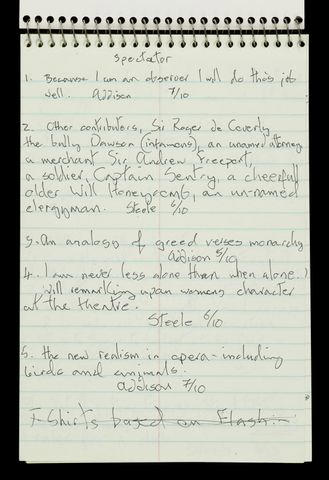 Spectator
1. Because I am an observer I will do this job
well. Addison 7/10
2. Other contributers, Sir Roger de Coverly
the bully Dawson (infamous), an unamed attorney
a merchant Sir Andrew Freeport,
a soldier, Captain Sentry, a cheerfull
older Will Honeycomb, an un-named
clergyman. Steele 6/10
3. An analogy of greed verses monarchy
Addison 5/10
4. I am never less alone than when alone.)
will remarking upon womens character
at the theatre.
Steele 6/10
5. the new realism in opera-including
birds and animals.
Addison 7/10
T-Shirts based on Flash